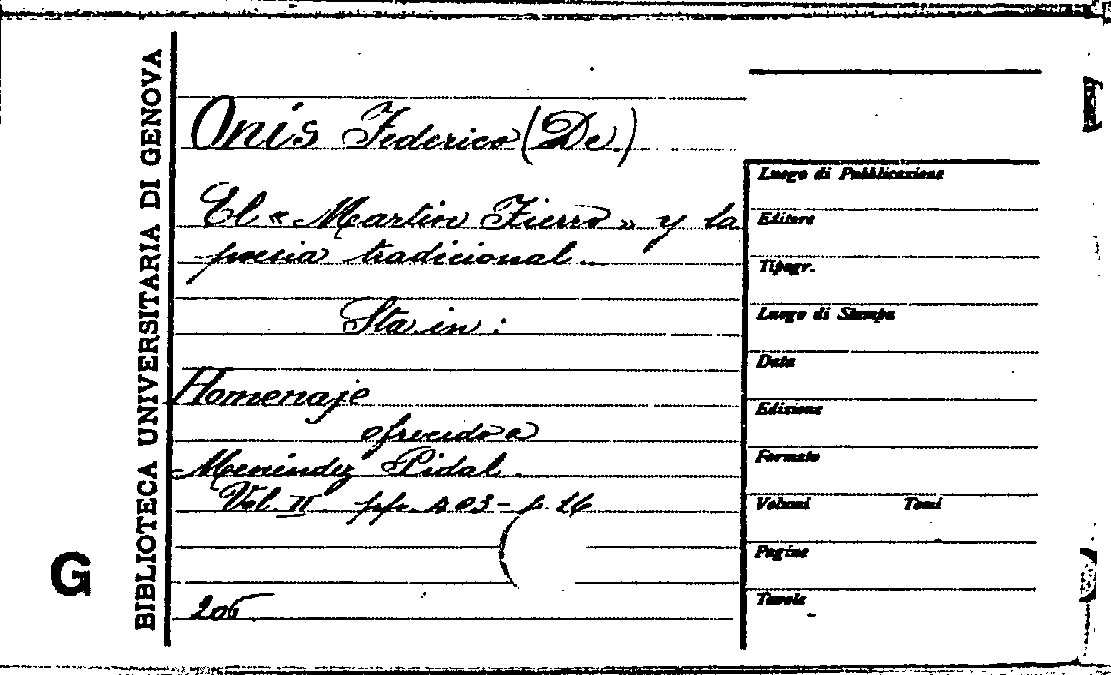 BIBLIOTECA UNIVERSITARIA DI GENOVA
G
Onis Federico (De)
El « Martin Fierro » y la
poesia tradicional
Sta in:
Homenaje
ofrecido a
Menéndez Pidal.
Vol. II pp.
Luogo di Pubblicazione
Editore
Tipogr.
Luogo di Stampa
Data
Edizione
Formato
Volumi Tomi
Pagine
Tavole